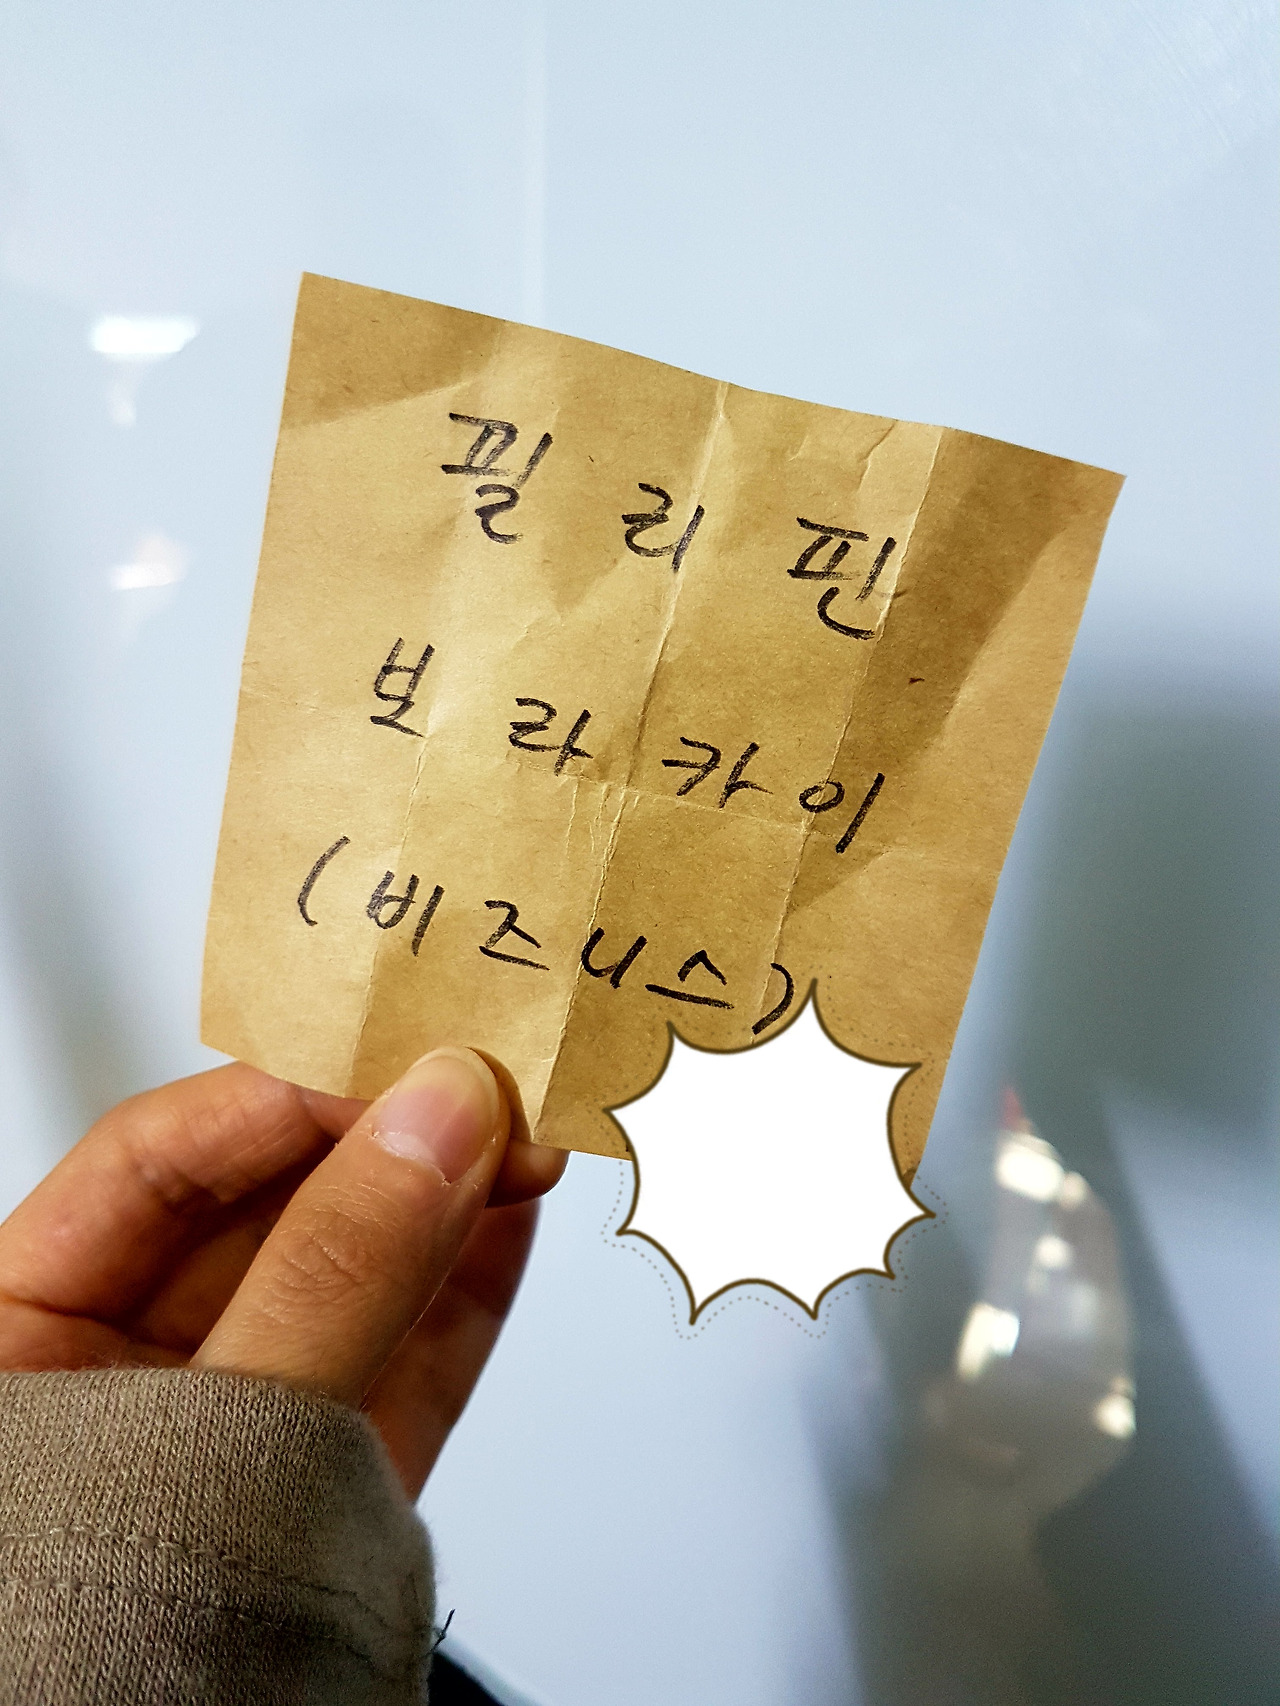 필리핀
보라카이
(비즈니스)